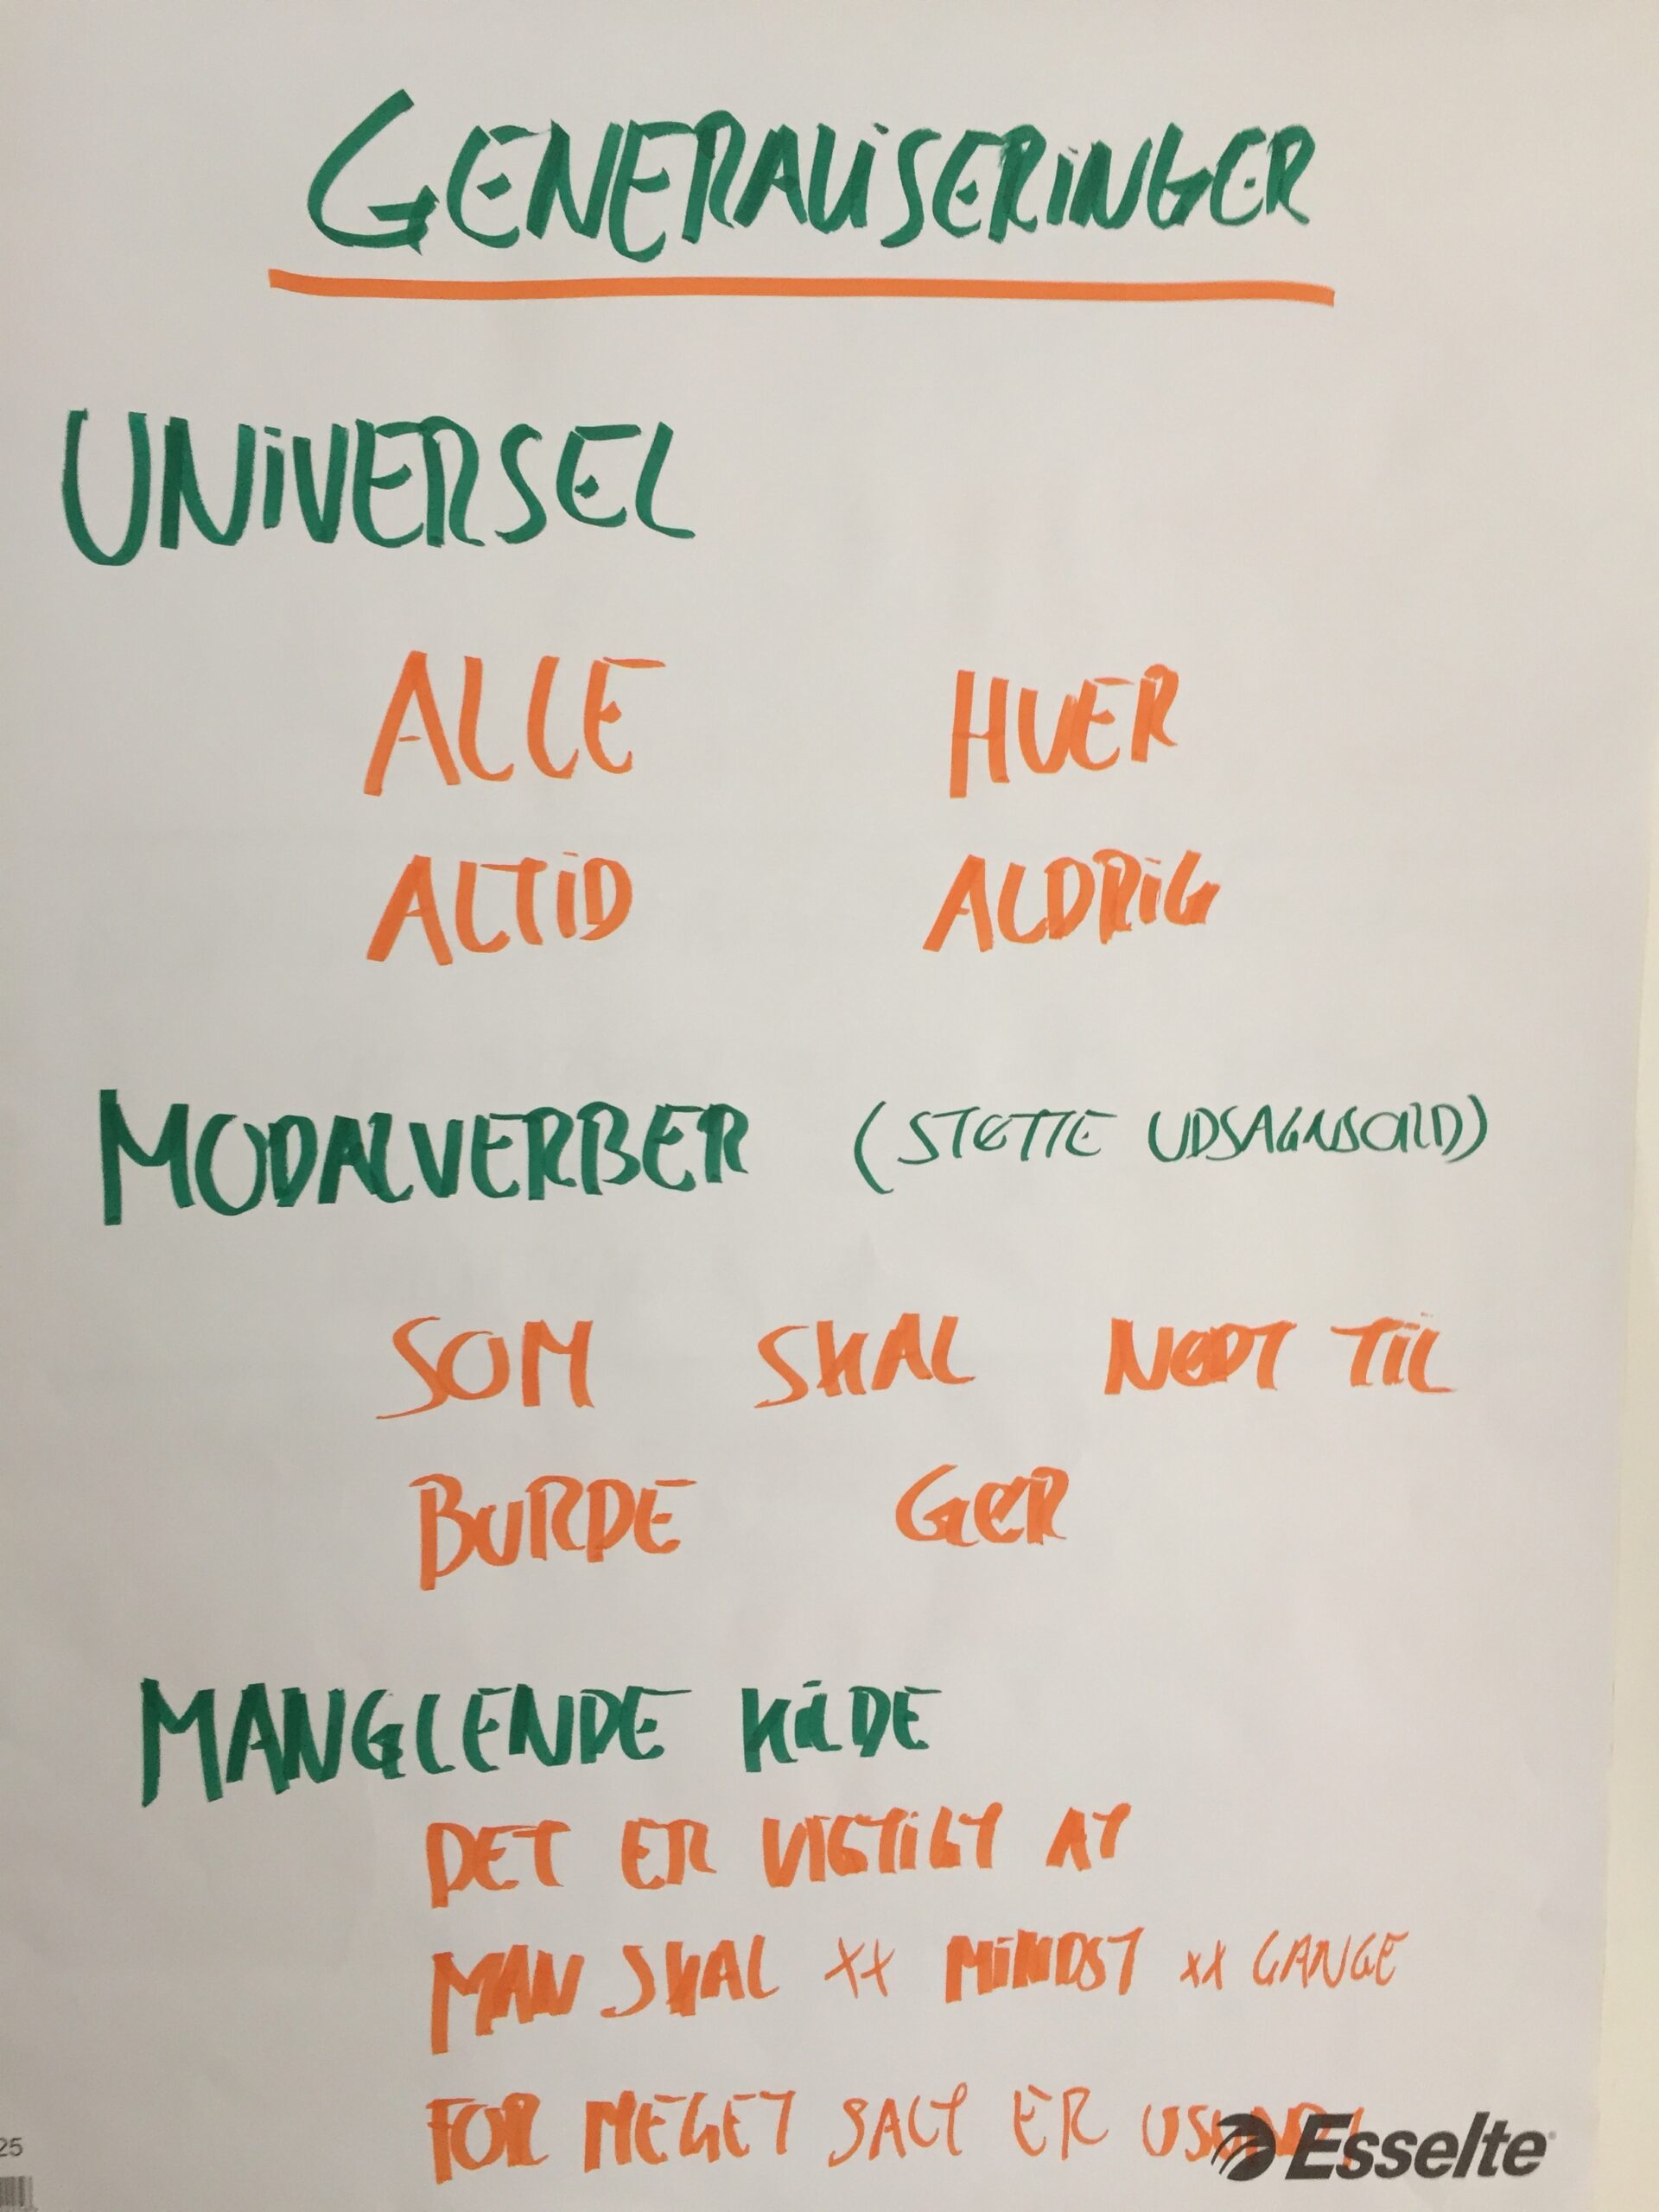 GENERALISERINGER
UNIVERSEL
ALLE HVER
ALTID ALDRIG
MODALVERBER (STØTTE UDSAGNSORD)
SOM SKAL NØDT TIL
BURDE GØR
MANGLENDE KILDE
DET ER VIGTIGT AT
MAN SKAL XX MINDST XX GANGE
FOR MEGET SALT ER USUNDT
Esselte
25